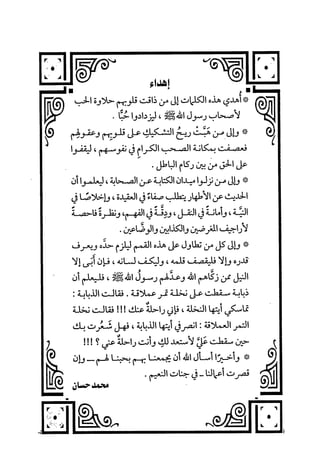 إهداء
* أُهدي هذه الكلمات إلى من ذاقت قلوبهم حلاوة الحب
لأصحاب رسول الله ﷺ ، ليزدادوا حُبًّا .
* وإلى من هَبَّتْ ريحُ التشكيكِ على قلوبِهِم وعقولِهِم
فعصفت بمكانة الصحب الكرام في نفوسهم ، ليقفوا
على الحق من بين ركام الباطل .
* وإلى من نزلوا ميدان الكتابة عن الصحابة ، ليعلموا أن
الحديث عن الأطهار يتطلب صفاءً في العقيدة ، وإخلاصًا في
النيَّة ، وأمانةً في النقل ، ودِقَّةً في الفهم، ونظرةً فاحصةً
لأراجيف المغرضين والكذابين والوضَّاعين .
* وإلى كل من تطاول على هذه القمم ليلزم حدَّه ويعرف
قدره وإلا فليقصف قلمه ، وليكف لسانه ، فإن أَبَى إلا
النيل ممن زكَّاهم الله وعدَّلهم رسولُ الله ﷺ ، فليعلم أن
ذبابة سقطت على نخلة تمر عملاقة . فقالت الذبابة :
تماسكي أيتها النخلة ، فإني راحلةٌ عنك !!! فقالت نخلة
التمر العملاقة : انصرفي أيتها الذبابة ، فهل شَعُرت بك
حين سقطت عَلَيَّ لأستعد لكِ وأنت راحلةٌ عني ؟ !!!
* وأخيرًا أسأل الله أن يجمعنا بهم بحبنا لهم ــ وإن
قصرت أعمالنا ــ في جنات النعيم .
محمد حسان